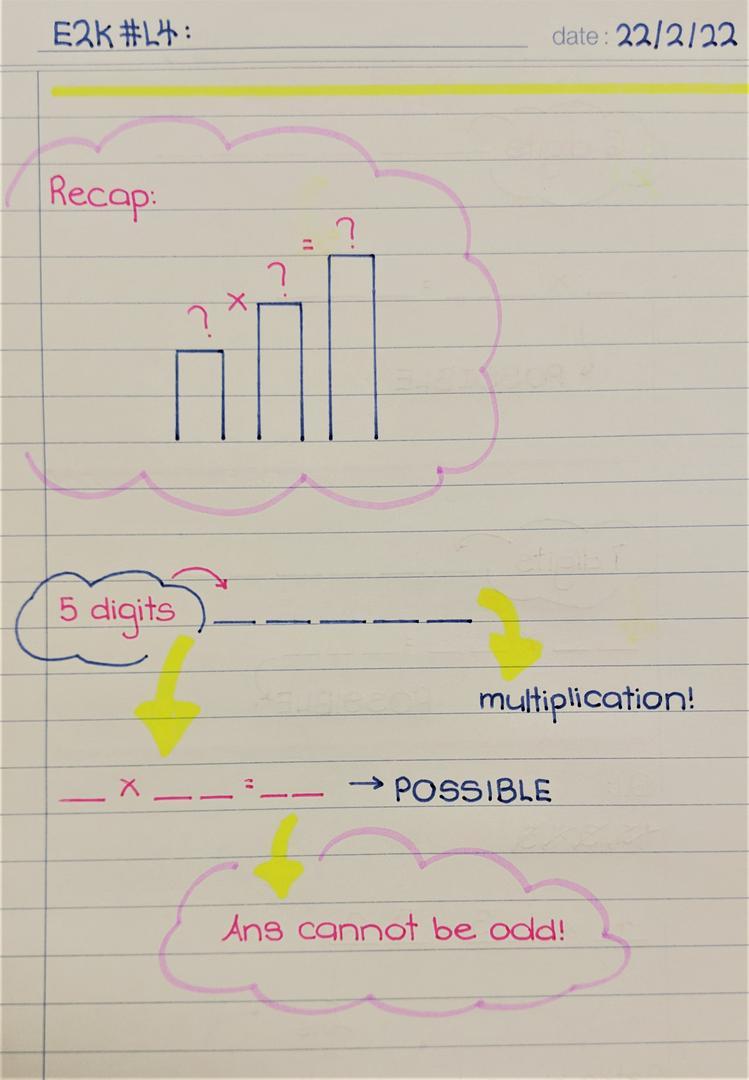 E2K #L4:
date: 22/2/22
Recap:
? × ? = ?
5 digits _ _ _ _ _
multiplication!
_ × _ _ = _ _ → POSSIBLE
Ans cannot be odd!